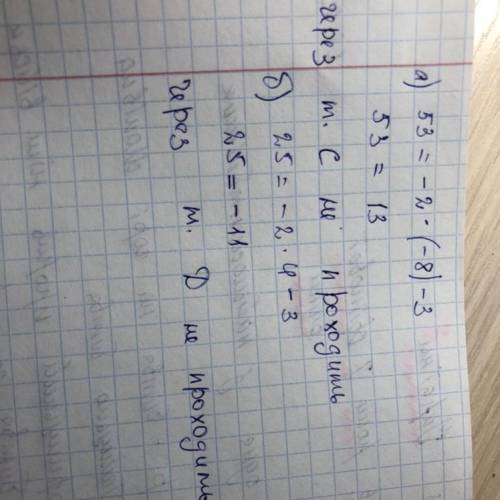 а) 53 = -2 · (-8) - 3
53 = 13
через т. С не проходить
б) 25 = -2 · 4 - 3
25 = -11
через т. D не проходить